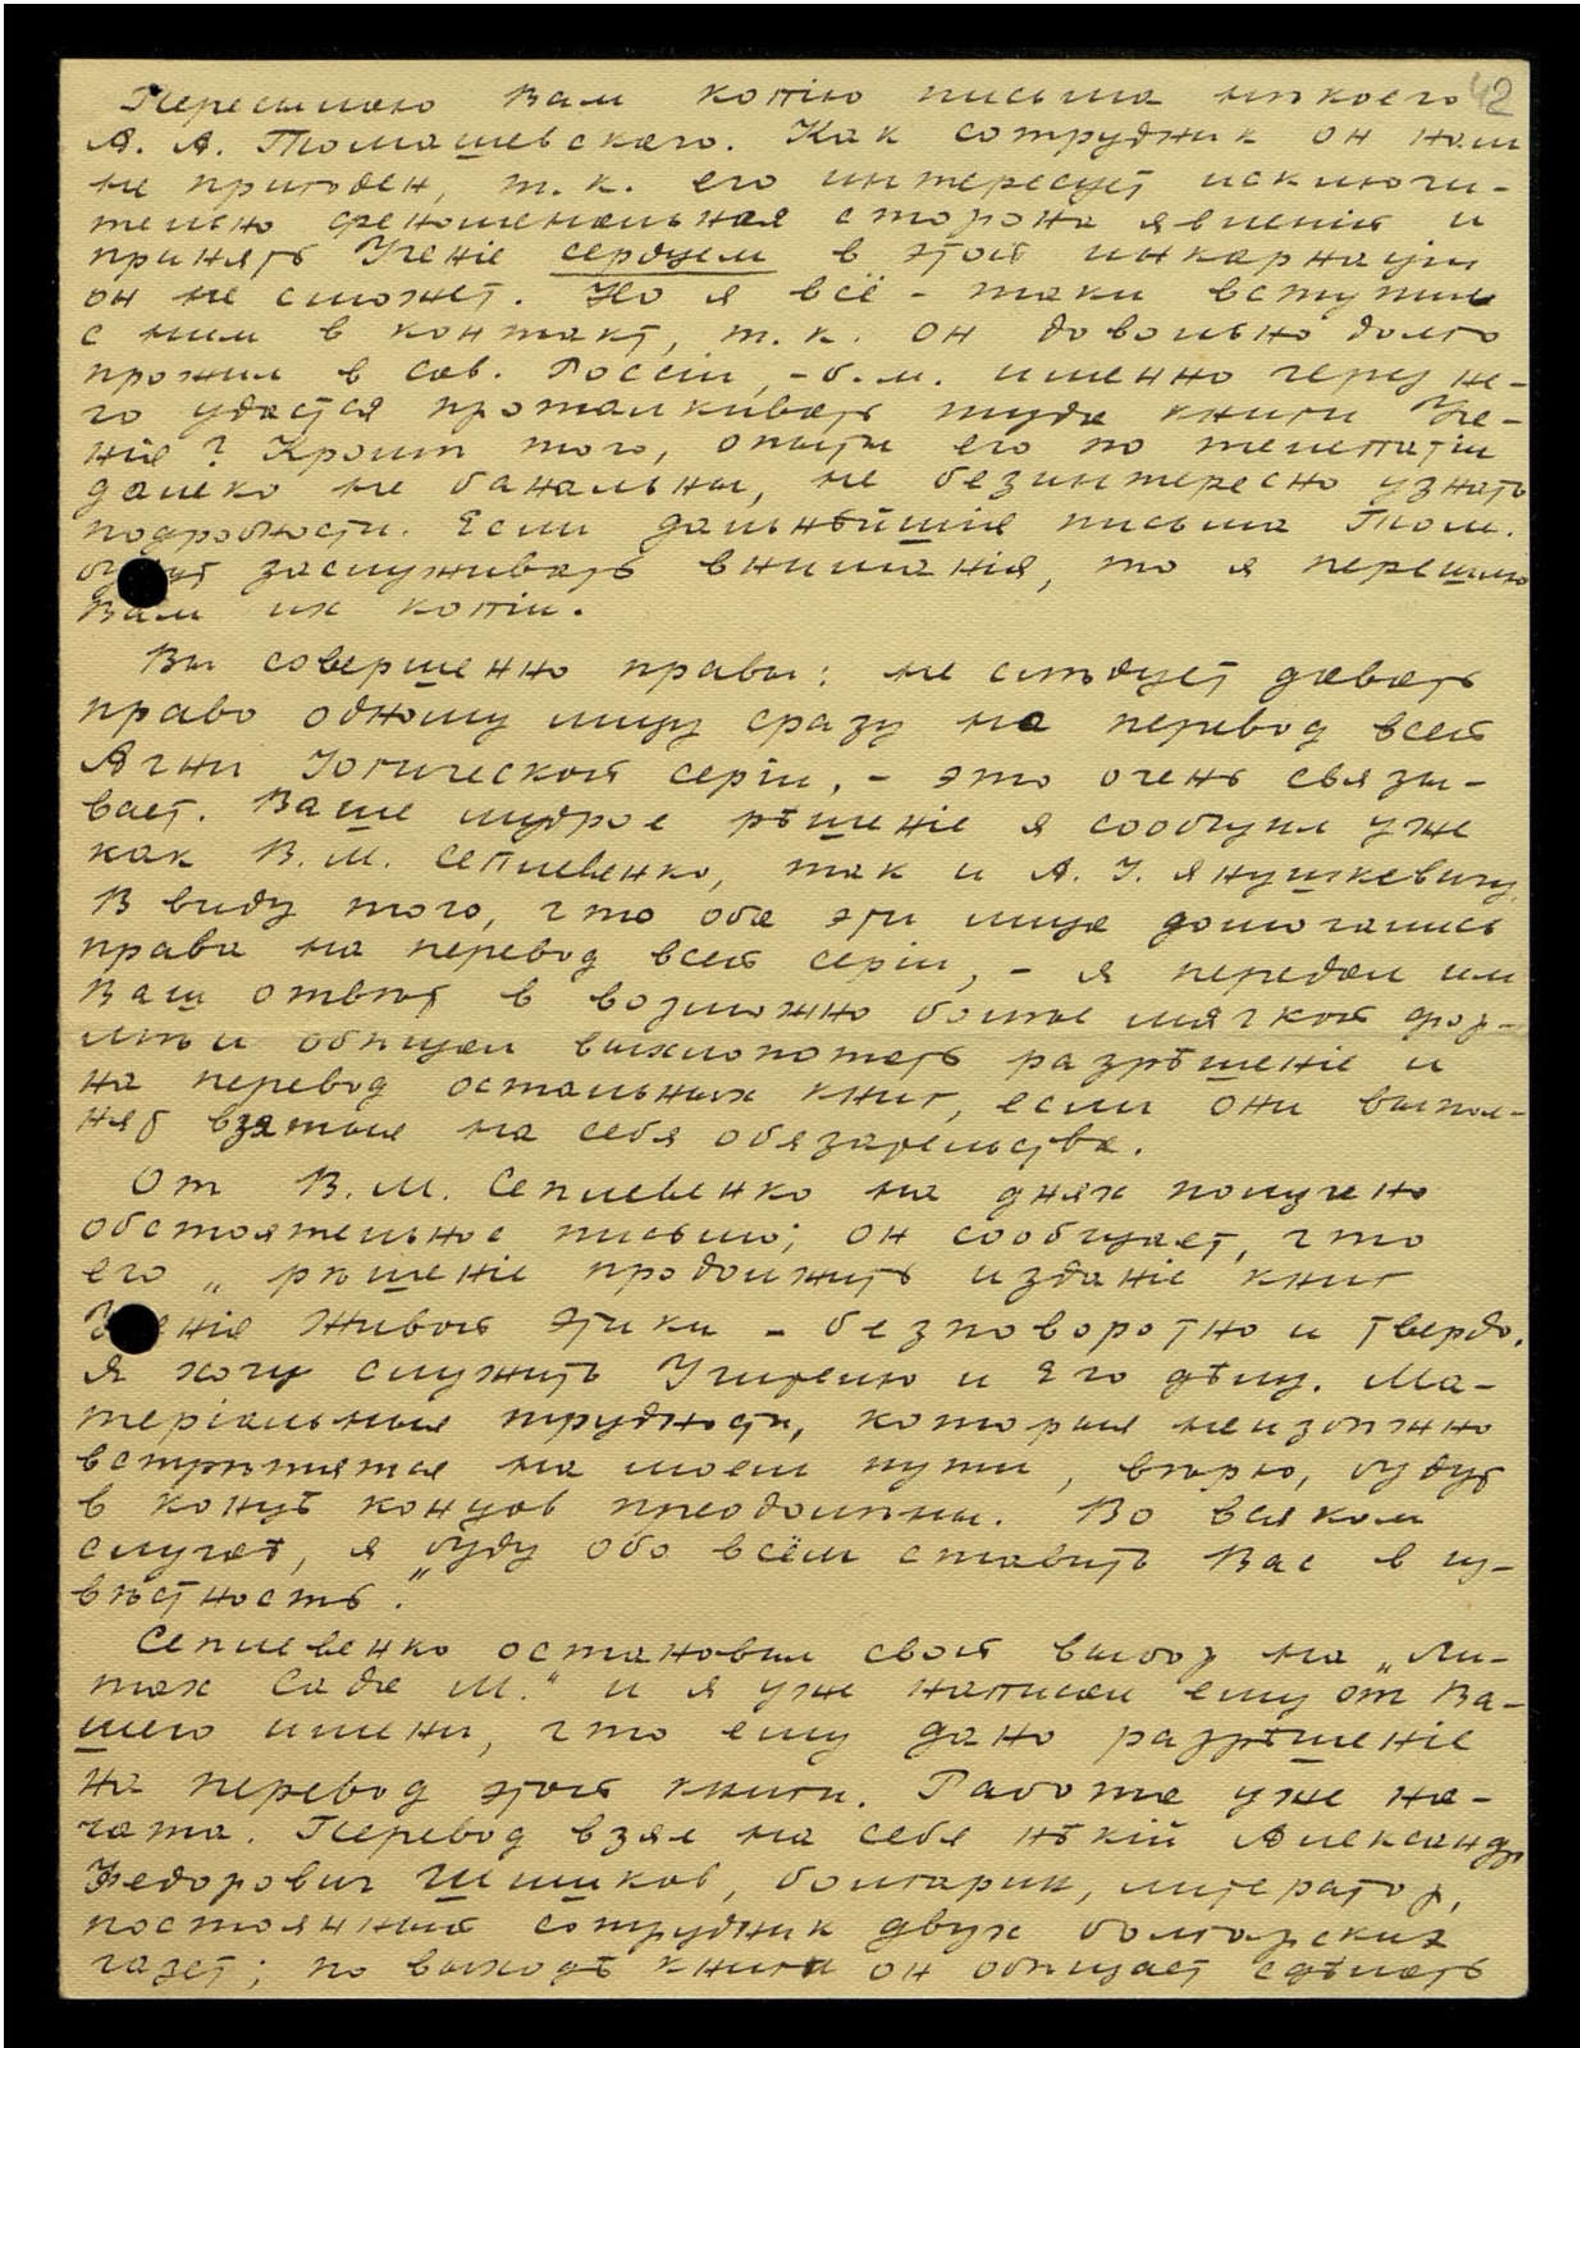 42
Пересылаю Вам копію письма нѣкоего
А. А. Томашевскаго. Как сотрудник он нам
не пригоден, т. к. его интересует исключи-
тельно феноменальная сторона явленій и
принять Ученіе сердцем в этой инкарнаціи
он не сможет. Но я всё-таки вступил
с ним в контакт, т. к. он довольно долго
прожил в сов. Россіи, - б. м. именно через не-
го удастся проталкивать туда книги Уче-
нія? Кромѣ того, опыты его по телепатіи
далеко не банальны, не безинтересно узнать
подробности. Если дальнѣйшія письма Том.
будут заслуживать вниманія, то я перешлю
Вам их копіи.
Вы совершенно правы: не слѣдует давать
право одному лицу сразу на перевод всей
Агни Іогической серіи, - это очень связы-
вает. Ваше мудрое рѣшеніе я сообщил уже
как В. М. Сеплевенко, так и А. І. Янушкевичу.
В виду того, что оба эти лица домогались
права на перевод всей серіи, - я передал им
Ваш отвѣт в возможно болѣе мягкой фор-
мѣ и обѣщал выхлопотать разрѣшеніе и
на перевод остальных книг, если они выпол-
нят взятые на себя обязательства.
От В. М. Сеплевенко на днях получено
обстоятельное письмо; он сообщает, что
его „ рѣшеніе продолжить изданіе книг
Ученія Живой Этики - безповоротно и твердо.
Я хочу служить Учителю и Его дѣлу. Ма-
теріальные трудности, которые неизбѣжно
встрѣтятся на моем пути, вѣрю, будут
в концѣ концов преодолѣны. Во всяком
случаѣ, я буду обо всём ставить Вас в из-
вѣстность.“
Сеплевенко остановил свой выбор на „Ли-
тах Сада М.“ и я уже написал ему от Ва-
шего имени, что ему дано разрѣшеніе
на перевод этой книги. Работа уже на-
чата. Перевод взял на себя нѣкій Александр
Федорович Шишков, болгарин, литератор,
постоянный сотрудник двух болгарских
газет; по выходѣ книги он обѣщает сдѣлать